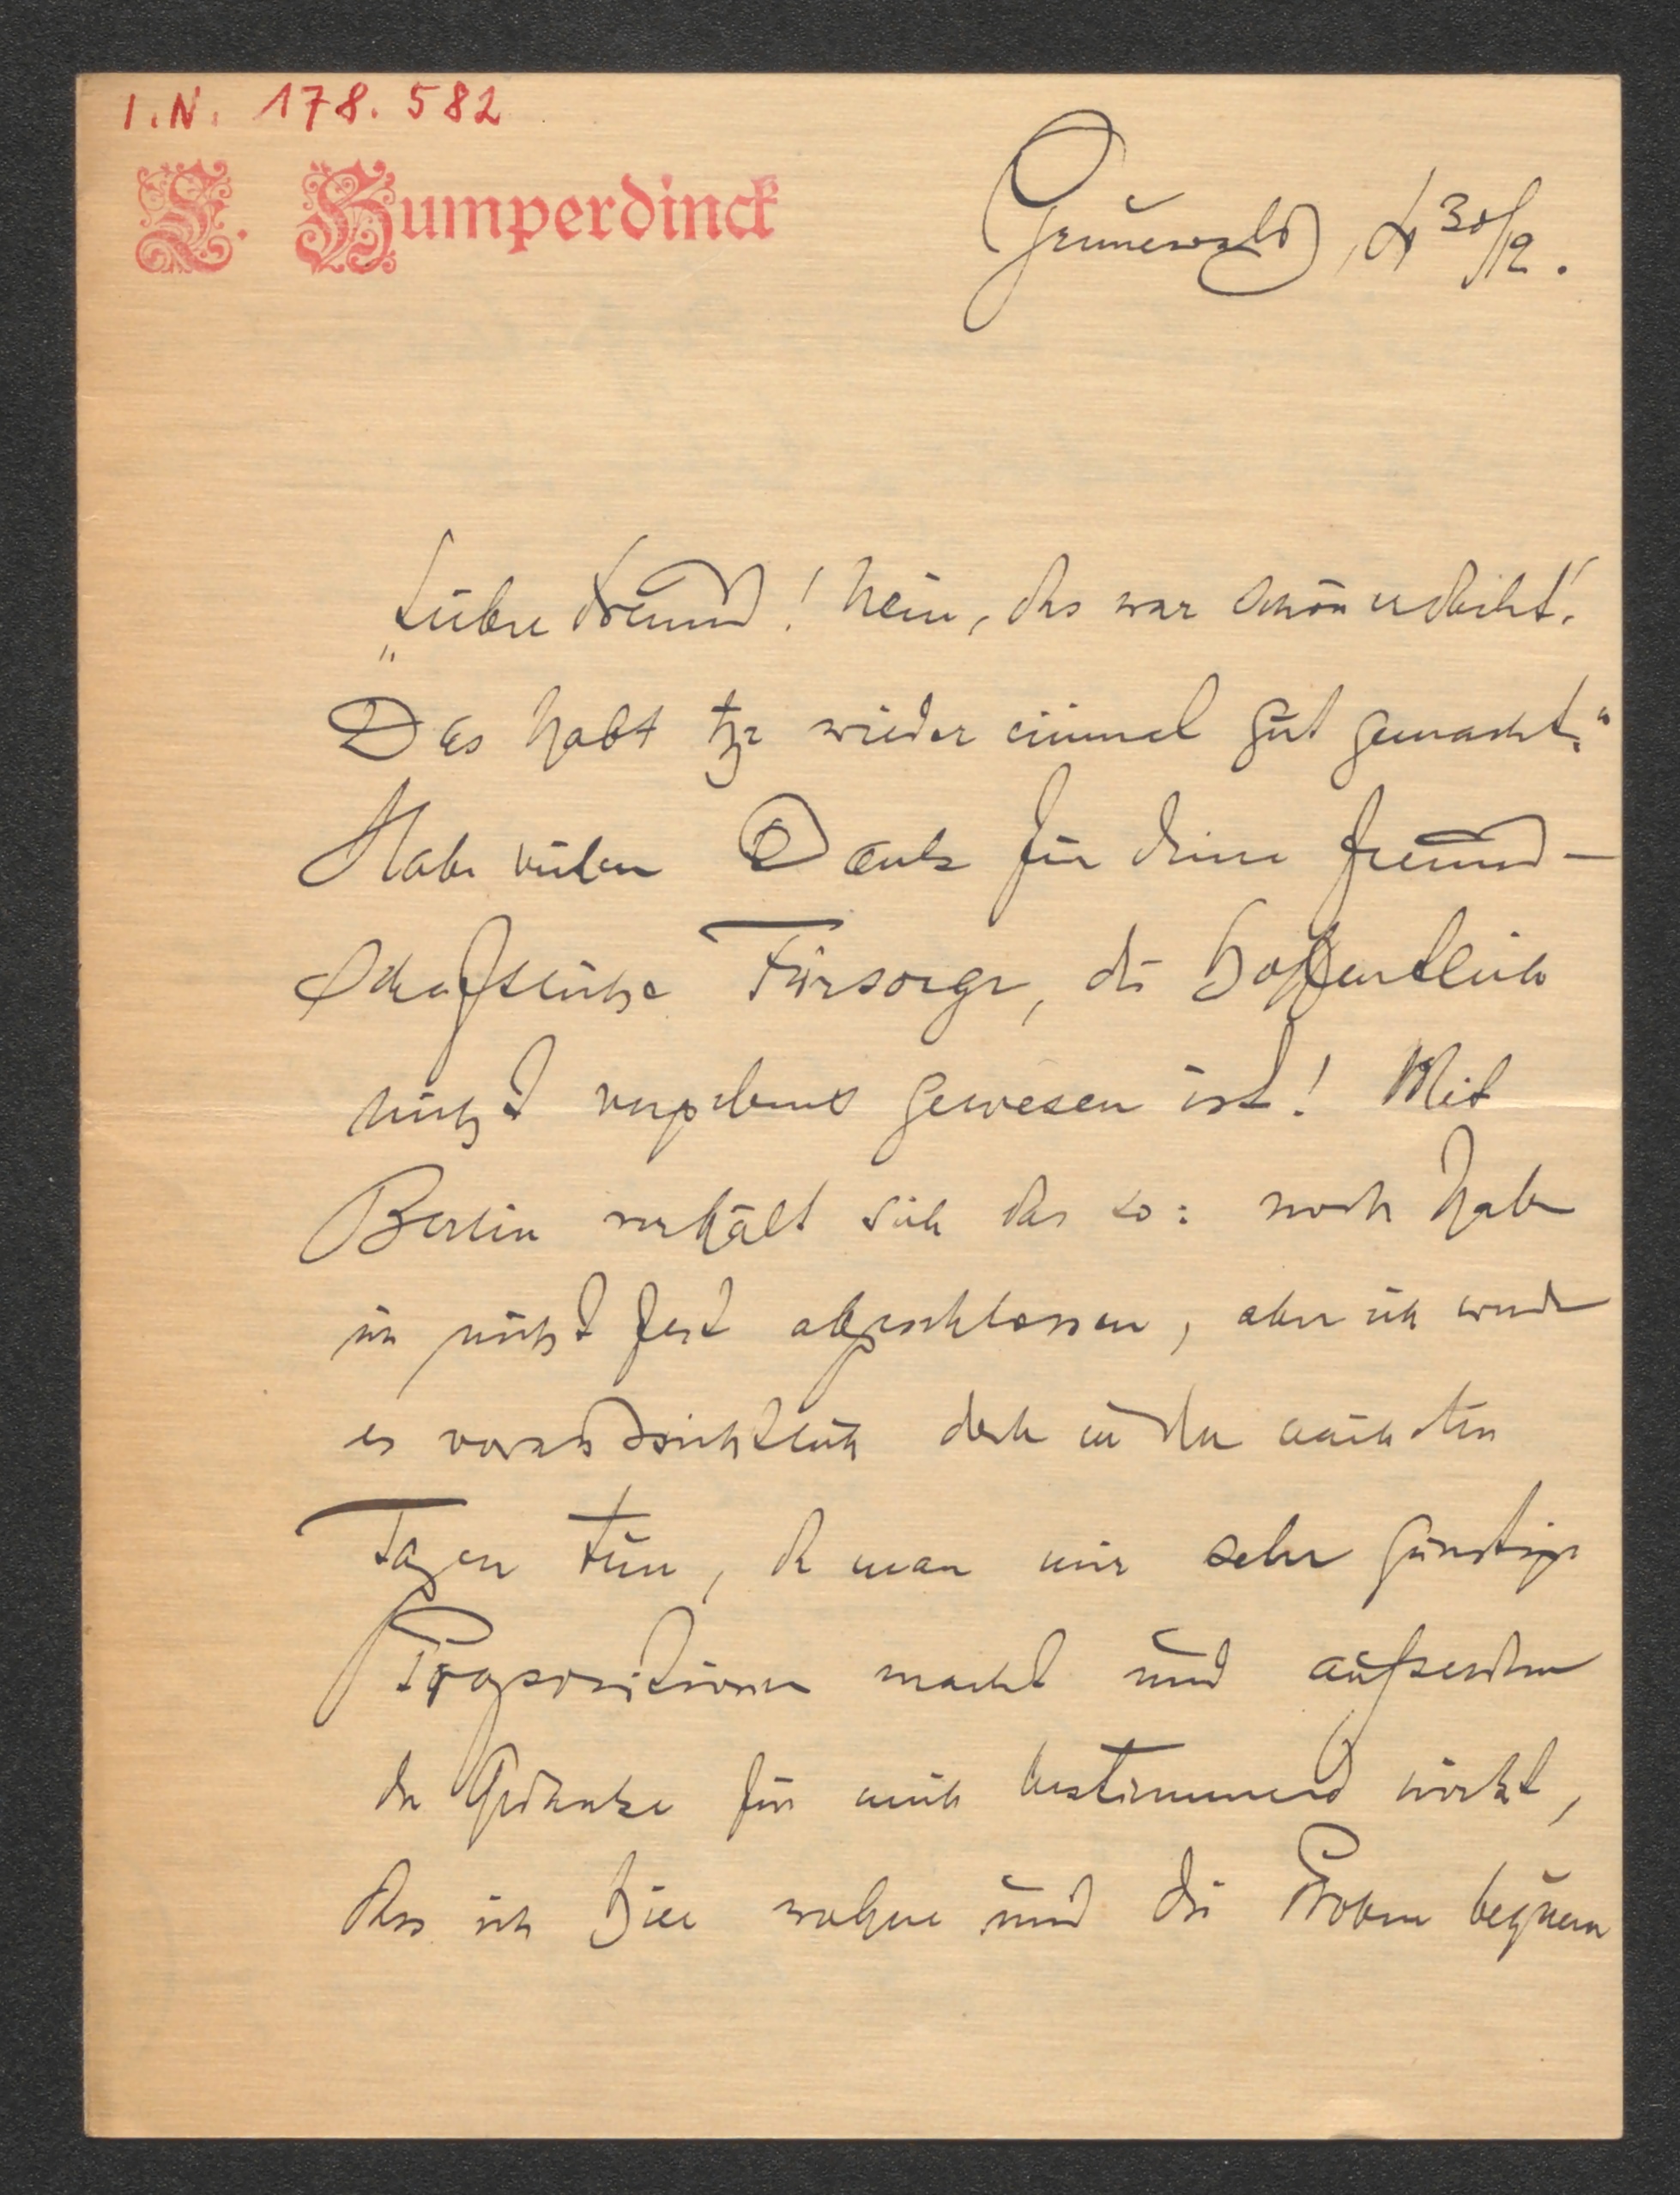 I.N. 178.582
E. Humperdinck
Grunewald, d 30/12.
„Lieber Freund! Nein, das war schön erdacht!
Das habt Ihr wieder einmal gut gemacht."
Habe vielen Dank für deine freund-
schaftliche Fürsorge, die hoffentlich
nicht vergebens gewesen ist! Mit
Berlin verhält sich das so: noch habe
ich nicht fest abgeschlossen, aber ich werde
es voraussichtlich doch in den nächsten
Tagen tun, da man mir sehr günstige
Propositionen macht und aufserdem
der Gedanke für mich bestimmend wirkt,
dass ich hier wohne und die Proben bequem